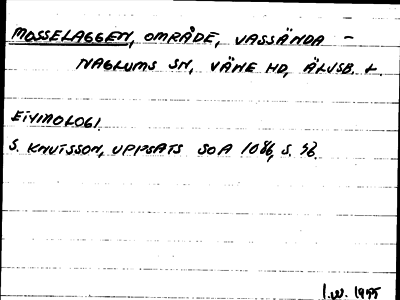 MOSSELAGGEN, OMRÅDE, VASSÄNDA -
NAGLUMS SN, VÄNE HD, ÄLVSB. L.
ETYMOLOGI.
S. KNUTSSON, UPPSATS SOA 1086, S. 56.
I.W. 1995